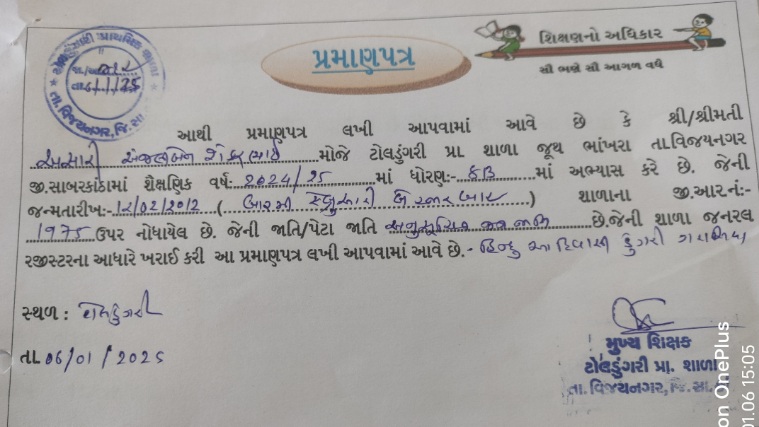 પ્રમાણપત્ર
શિક્ષણનો અધિકાર
સૌ ભણે સૌ આગળ વધે
તા. વિજયનગર, જિ. સા.
આથી પ્રમાણપત્ર લખી આપવામાં આવે છે કે શ્રી/શ્રીમતી
અસારી મોજે ટોલડુંગરી પ્રા. શાળા જૂથ ભાંખરા તા.વિજયનગર
જી.સાબરકાંઠામાં શૈક્ષણિક વર્ષ 2024/25 માં ધોરણ:- 7B માં અભ્યાસ કરે છે. જેની
જન્મતારીખ:- 12/02/2012 ( બારમી ફેબ્રુઆરી બે હજાર બાર ) શાળાના જી.આર.નં:-
1975 ઉપર નોધાયેલ છે. જેની જાતિ/પેટા જાતિ અનુસૂચિત જન જાતિ છે.જેની શાળા જનરલ
રજીસ્ટરના આધારે ખરાઈ કરી આ પ્રમાણપત્ર લખી આપવામાં આવે છે.- હિન્દુ આદિવાસી ડુંગરી ગરાસિયા
સ્થળ : ટોલડુંગરી
તા. 06/01/2025
મુખ્ય શિક્ષક
ટોલડુંગરી પ્રા. શાળા
તા. વિજયનગર, જિ. સા.
on OnePlus
01.06 15:05